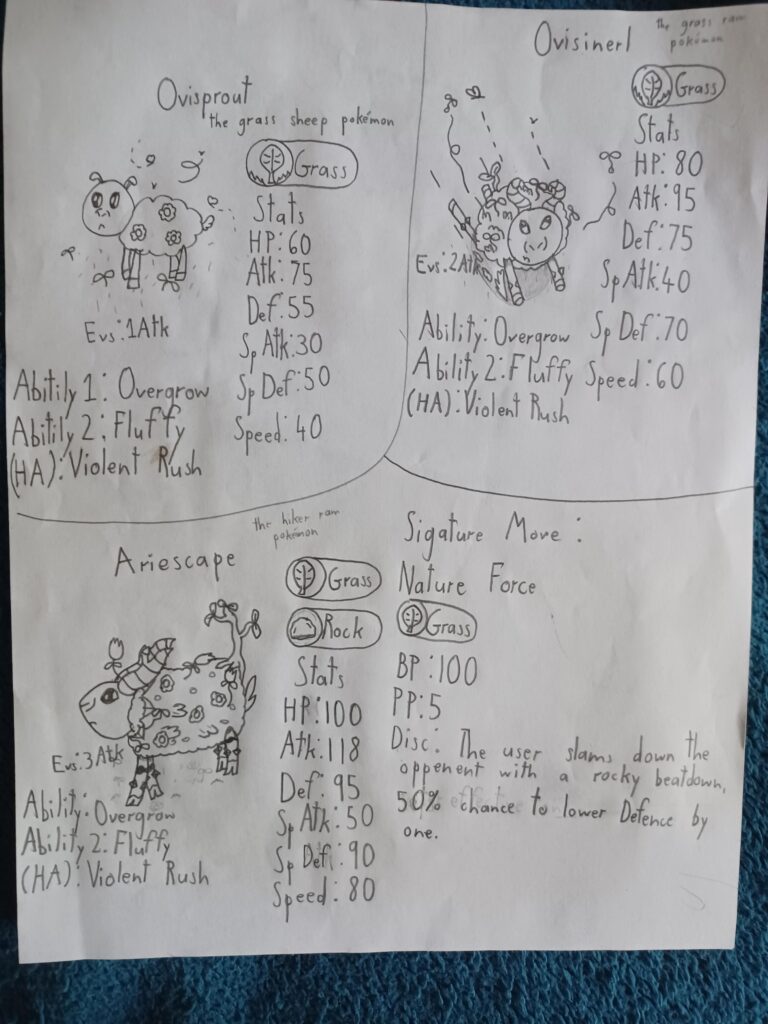 Ovisprout
the grass sheep pokémon
Grass
Stats
HP: 60
Atk: 75
Def: 55
Sp Atk: 30
Sp Def: 50
Speed: 40
Evs: 1Atk
Abitily 1: Overgrow
Abitily 2: Fluffy
(HA): Violent Rush
Ovisinerl
the grass ram
pokémon
Grass
Stats
HP: 80
Atk: 95
Def: 75
Sp Atk: 40
Sp Def: 70
Speed: 60
Evs: 2Atk
Ability: Overgrow
Ability 2: Fluffy
(HA): Violent Rush
Ariescape
the hiker ram
pokémon
Grass
Rock
Stats
HP: 100
Atk: 118
Def: 95
Sp Atk: 50
Sp Def: 90
Speed: 80
Evs: 3Atks
Ability: Overgrow
Ability 2: Fluffy
(HA): Violent Rush
Sigature Move:
Nature Force
Grass
BP: 100
PP: 5
Disc: The user slams down the
oppenent with a rocky beatdown,
50% chance to lower Defence by
one.